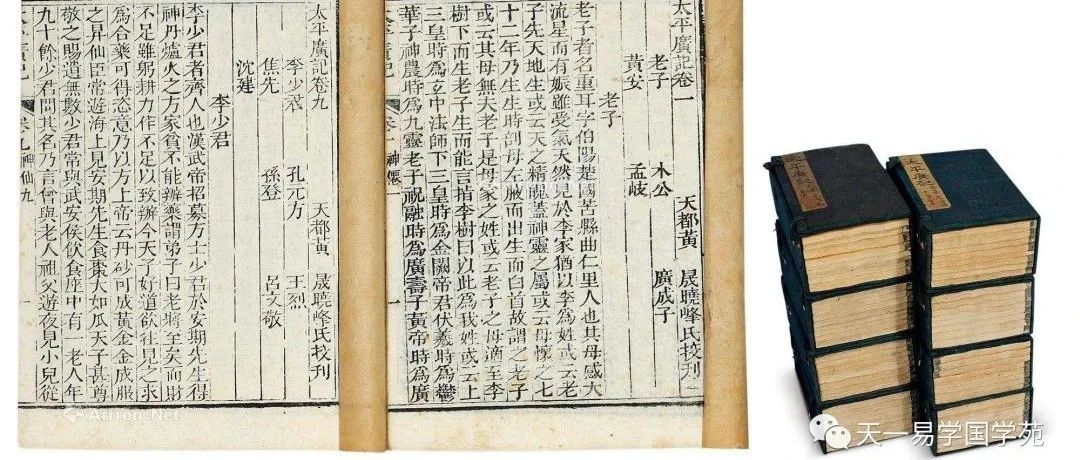 太平廣記卷一
天都黃 晟曉峰氏校刊
老子 木公 廣成子
黃安 孟岐
老子
老子者名重耳字伯陽楚國苦縣曲仁里人也其母感大
流星而有娠雖受氣天然見於李家猶以李為姓或云老
子先天地生或云天之精魄蓋神靈之屬或云母懷之七
十二年乃生生時剖母左腋而出生而白首故謂之老子
或云其母無夫老子是母家之姓或云老子之母適至李
樹下而生老子生而能言指李樹曰以此為我姓或云上
三皇時為玄中法師下三皇時為金闕帝君伏羲時為鬱
華子神農時為九靈老子祝融時為廣壽子黃帝時為廣
太平廣記 卷一 神仙 一
太平廣記卷九
天都黃 晟曉峰氏校刊
李少君 孔元方 王烈
焦先 孫登 呂文敬
沈建
李少君
李少君者齊人也漢武帝招募方士少君於安期先生得
神丹爐火之方家貧不能辦藥謂弟子曰老將至矣而財
不足雖躬耕力作不足以致辦今天子好道欲往見之求
為合藥可得恣意乃以方上帝云丹砂可成黃金金成服
之昇仙臣常遊海上見安期先生食棗大如瓜天子甚尊
敬之賜遺無數少君常與武安侯飲食座中有一老人年
九十餘少君問其名乃言曾與老人祖父遊夜見小兒從
太平廣記 卷九 神仙九 一
太平廣記
太平廣記
Artron.Net
天一易学国学苑